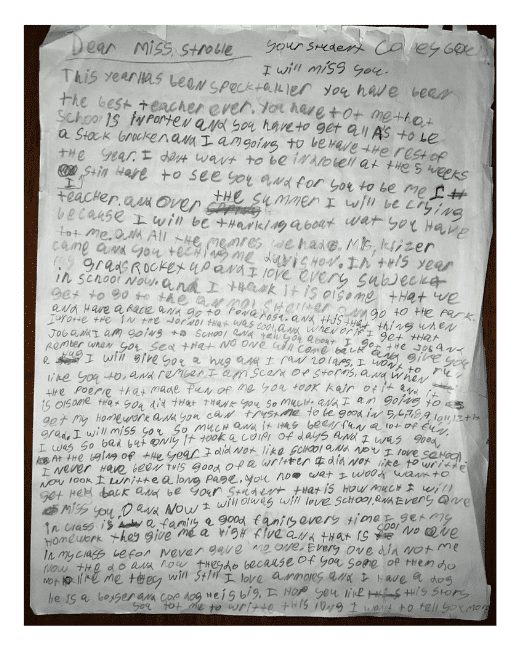 Dear Miss, stroble your student Corey Cox
I will miss you.
This year Has been specktakller you have been
the best teacher ever. You have tot me that
School is inporten and you have to get all A's to be
a stock brocker and I am going to behave the rest of
the year. I dont want to be in at the 5 weeks
I still have to see you and for you to be me
teacher. and over the summer I will be crying
because I will be thanking about wat you have
tot me. and All the memres we have. Mr. Klizer
came and you teching me davishon. In this year
my grads Rocket up and I love every subject
in school now. and I thank it is olsome that we
get to go to the anmol shellter and go to the park.
and Have a race and go to Ponarosa. and this that thing when
I wrote the in the Jornol that was cool. and when or if I get that
Job and I am going to school and tell you about I got the job and
Ramber when you sed that NO one will come back and give you
a I will give you a hug and I ran 20 lars. I want to run
like you to. and rember I am scerd of storms. and when
the poerie that made fun of me you took kair of it and it
is olsome that you did that thank you so much. and I am going to
get my Homework and you can trust me to be good in 5,6,7,8,9,10,11,12th
grad. I will miss you so much and it has been fun a lot of fun.
I was so bad but only it took a colpl of days and I was good.
at the bging of the year I did not like school and now I love school.
I never have been this good of a writter I did not like to writte
now look I writte a long page. you no wat I wood want to
get Held back and be your student that is how much I will
miss you. :D and Now I will olways will love school. and Every one
in class is a family a good family every time I get my
Homework they give me a High five and that is cool no one
in my class befor never gave me one. Every one did not me
now the do and now they do because of you some of them do
not like me they will still I love anmols and I have a dog
he is a boxser and cop dog He is big. I Hop you like this story
you tot me to writte this long I want to tell you more